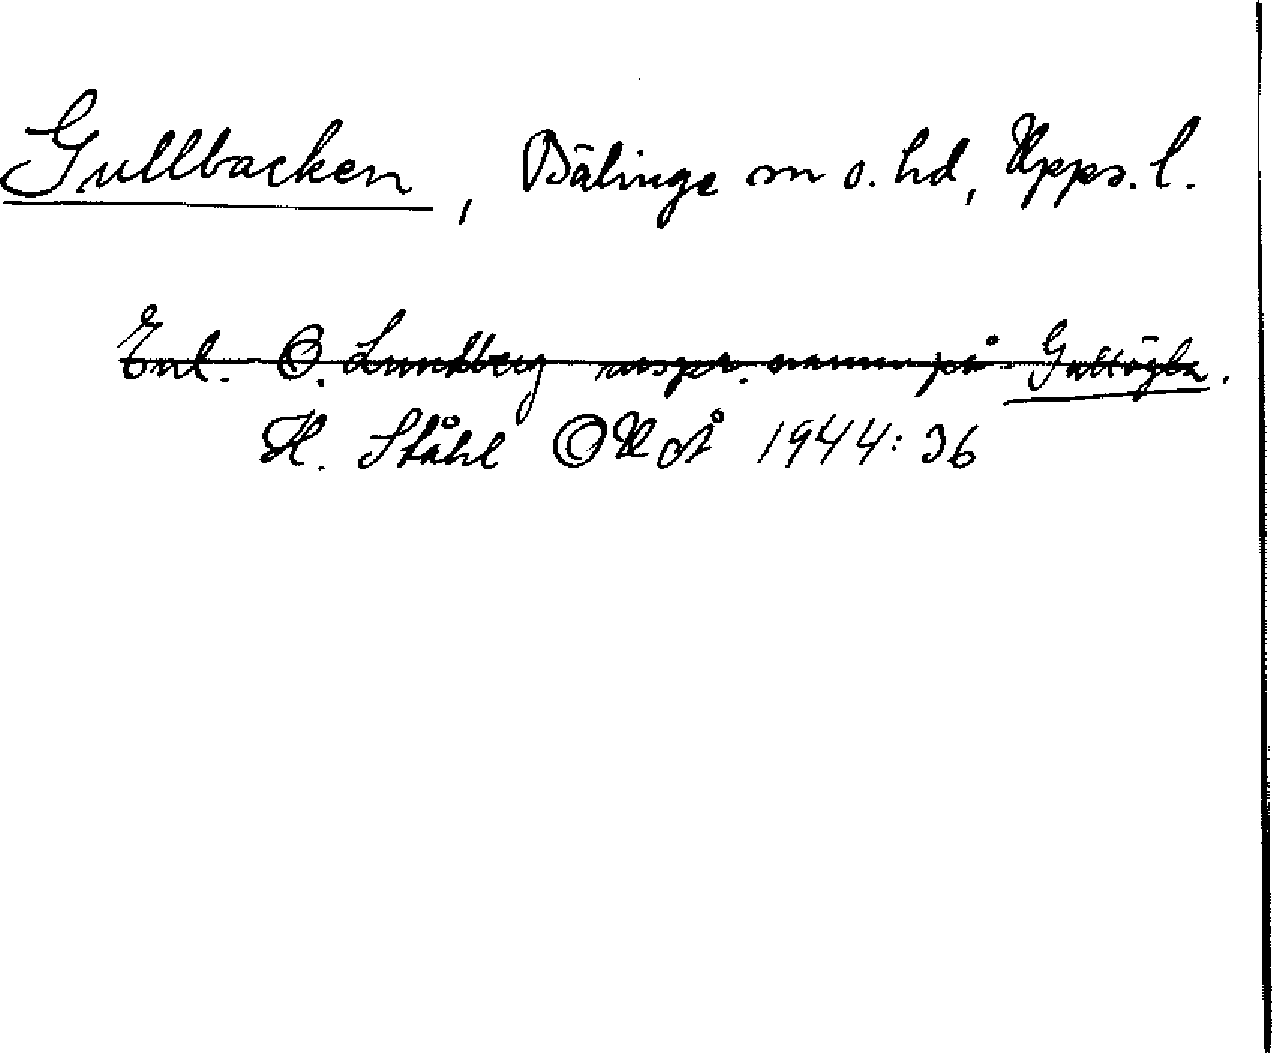 Gullbacken, Bälinge sn o. hd, Upps. l.
Enl. O. Lundberg urspr. namn på Gullögla.
H. Ståhl ONoÅ 1944: 36